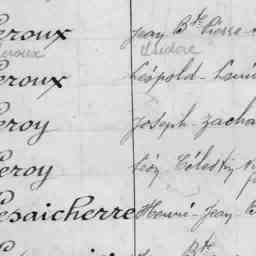 eroux Jean Bte Pierre
eroux Isidore
eroux Léopold - Louis
eroy Joseph - Zacha
eroy Léon Célestin
esaicherre Henri - Jean - B
Bte